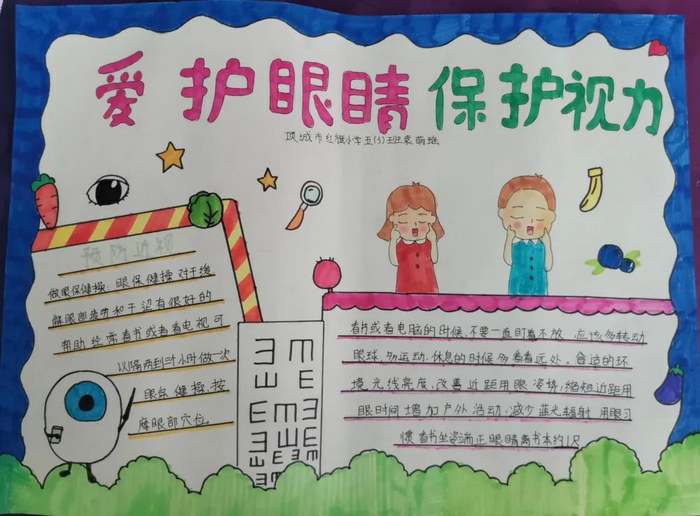 爱护眼睛保护视力
项城市红旗小学五(3)班袁萌雅
预防近视
做眼保健操:眼保健操对于缓
解眼部疲劳和干涩有很好的
帮助经常看书或者看电视可
以隔两到3个小时做一次
眼保健操,按
摩眼部穴位。
看书或者电脑的时候,不要一直盯着不放,应该多转动
眼球,多运动.休息的时候多看看远处。合适的环
境光线亮度,改善近距用眼姿情;缩短近距用
眼时间增加户外活动;减少蓝光辐射用眼习
惯看书坐姿端正眼睛离书本约1尺
E m
E